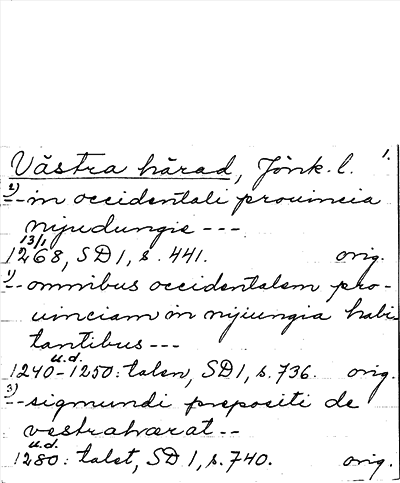 Västra härad, Jönk. l. 1.
2) -- in occidentali prouincia
niudungie ---
13/1
1268, SD 1, s. 441. orig.
1) -- omnibus occidentalem pro-
uinciam in niiungia habi-
tantibus ---
u.d.
1240-1250: talen, SD 1, s. 736. orig.
3) -- sigmundi prepositi de
vestrahærat --
u.d.
1280: talet, SD 1, s. 740. orig.